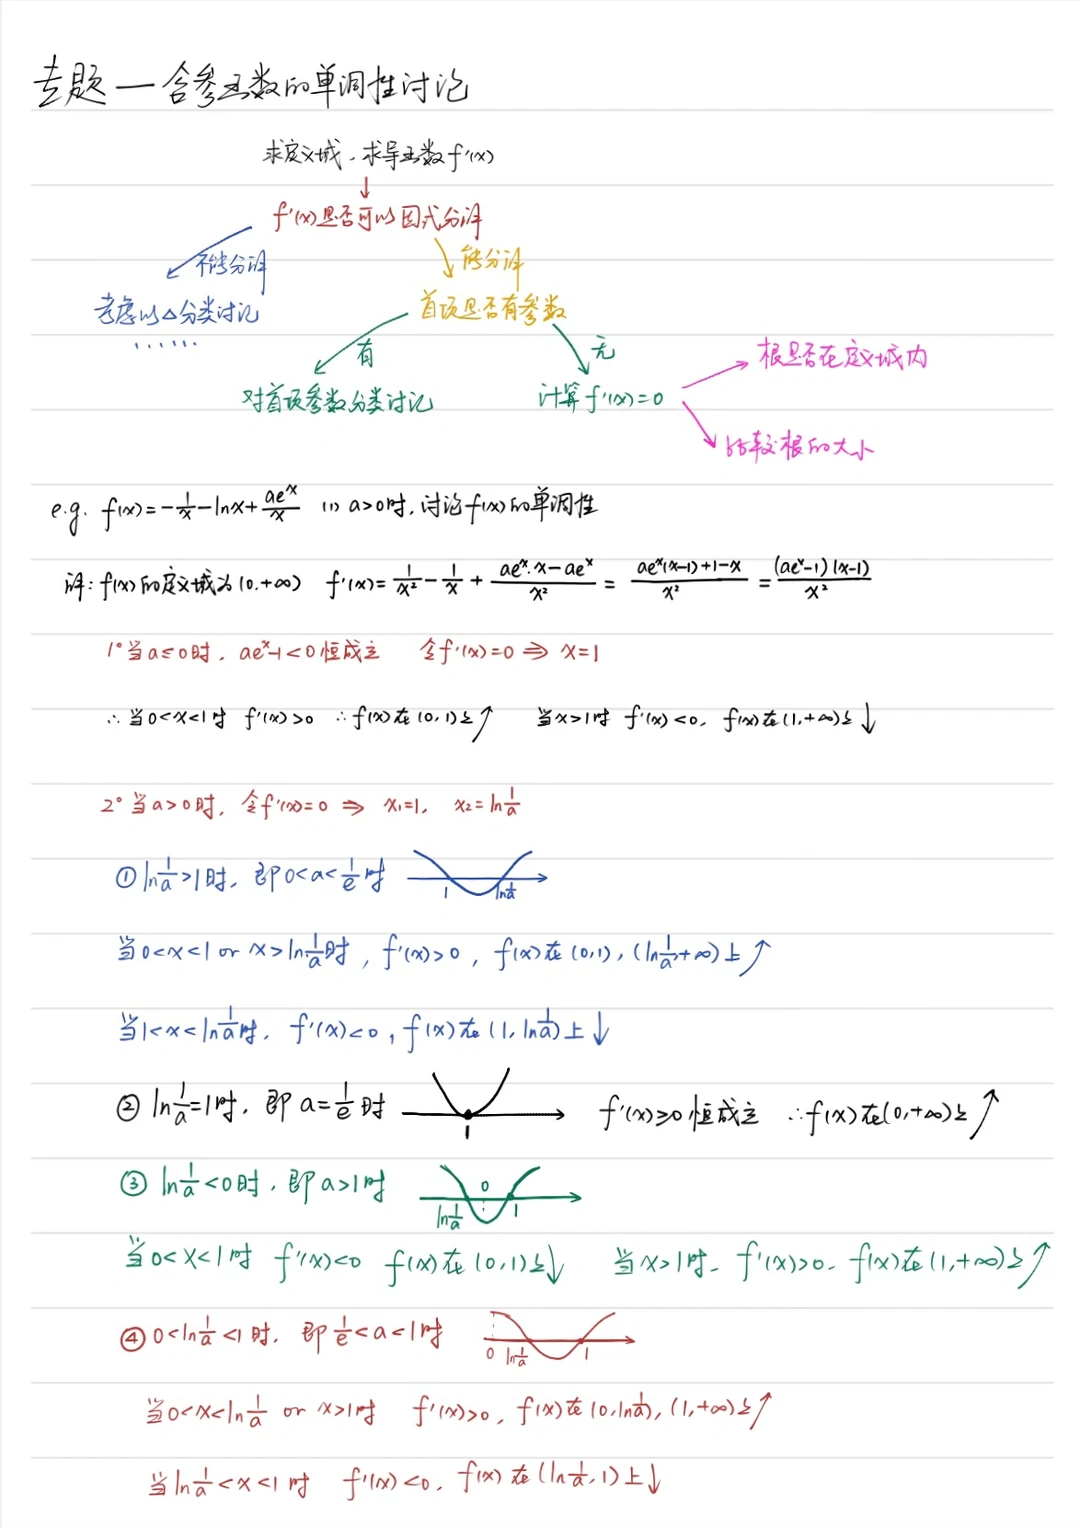 专题一 含参函数的单调性讨论
求定义域、求导函数f'(x)
f'(x)是否可以因式分解
不能分解
能分解
考虑以△分类讨论
......
首项是否有参数
有
无
对首项参数分类讨论
计算f'(x)=0
根是否在定义域内
比较根的大小
e.g. f(x)=-1/x-lnx+ae^x/x (1) a>0时,讨论f(x)的单调性
解:f(x)的定义域为(0,+∞) f'(x)=1/x²-1/x+(ae^x·x-ae^x)/x²=(ae^x(x-1)+1-x)/x²=(ae^x-1)(x-1)/x²
1°当a≤0时, ae^x-1<0恒成立 令f'(x)=0⇒x=1
∴当0<x<1时 f'(x)>0 ∴f(x)在(0,1)上↗ 当x>1时 f'(x)<0, f(x)在(1,+∞)上↓
2°当a>0时, 令f'(x)=0 ⇒ x₁=1, x₂=ln1/a
①ln1/a>1时, 即0<a<1/e时
1 ln1/a
当0<x<1 or x>ln1/a时, f'(x)>0, f(x)在(0,1),(ln1/a,+∞)上↗
当1<x<ln1/a时, f'(x)<0, f(x)在(1,ln1/a)上↓
②ln1/a=1时, 即a=1/e时
1
f'(x)≥0恒成立 ∴f(x)在(0,+∞)上↗
③ ln1/a<0时, 即a>1时
ln1/a 0 1
当0<x<1时 f'(x)<0 f(x)在(0,1)上↓ 当x>1时, f'(x)>0, f(x)在(1,+∞)上↗
④0<ln1/a<1时, 即1/e<a<1时
0 ln1/a 1
当0<x<ln1/a or x>1时 f'(x)>0, f(x)在(0,ln1/a),(1,+∞)上↗
当ln1/a<x<1时 f'(x)<0, f(x)在(ln1/a,1)上↓